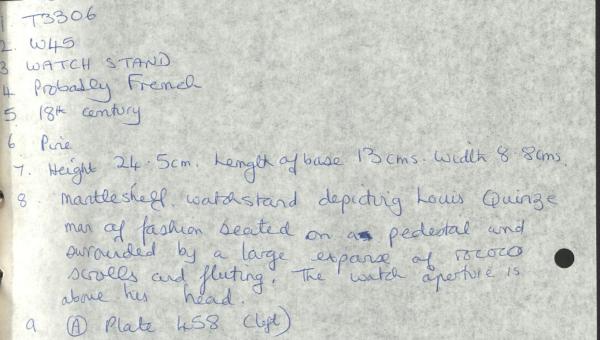 1 T3306
2. W45
3 WATCH STAND
4 Probably French
5 18th century
6 Pine
7. Height 24.5cm. Length of base 13cms. Width 8.8cms.
8. Mantleshelf watchstand depicting Louis Quinze
man of fashion seated on a pedestal and
surrounded by a large expanse of rococo
scrolls and fluting. The watch aperture is
above his head.
9 (A) Plate 458 (left)